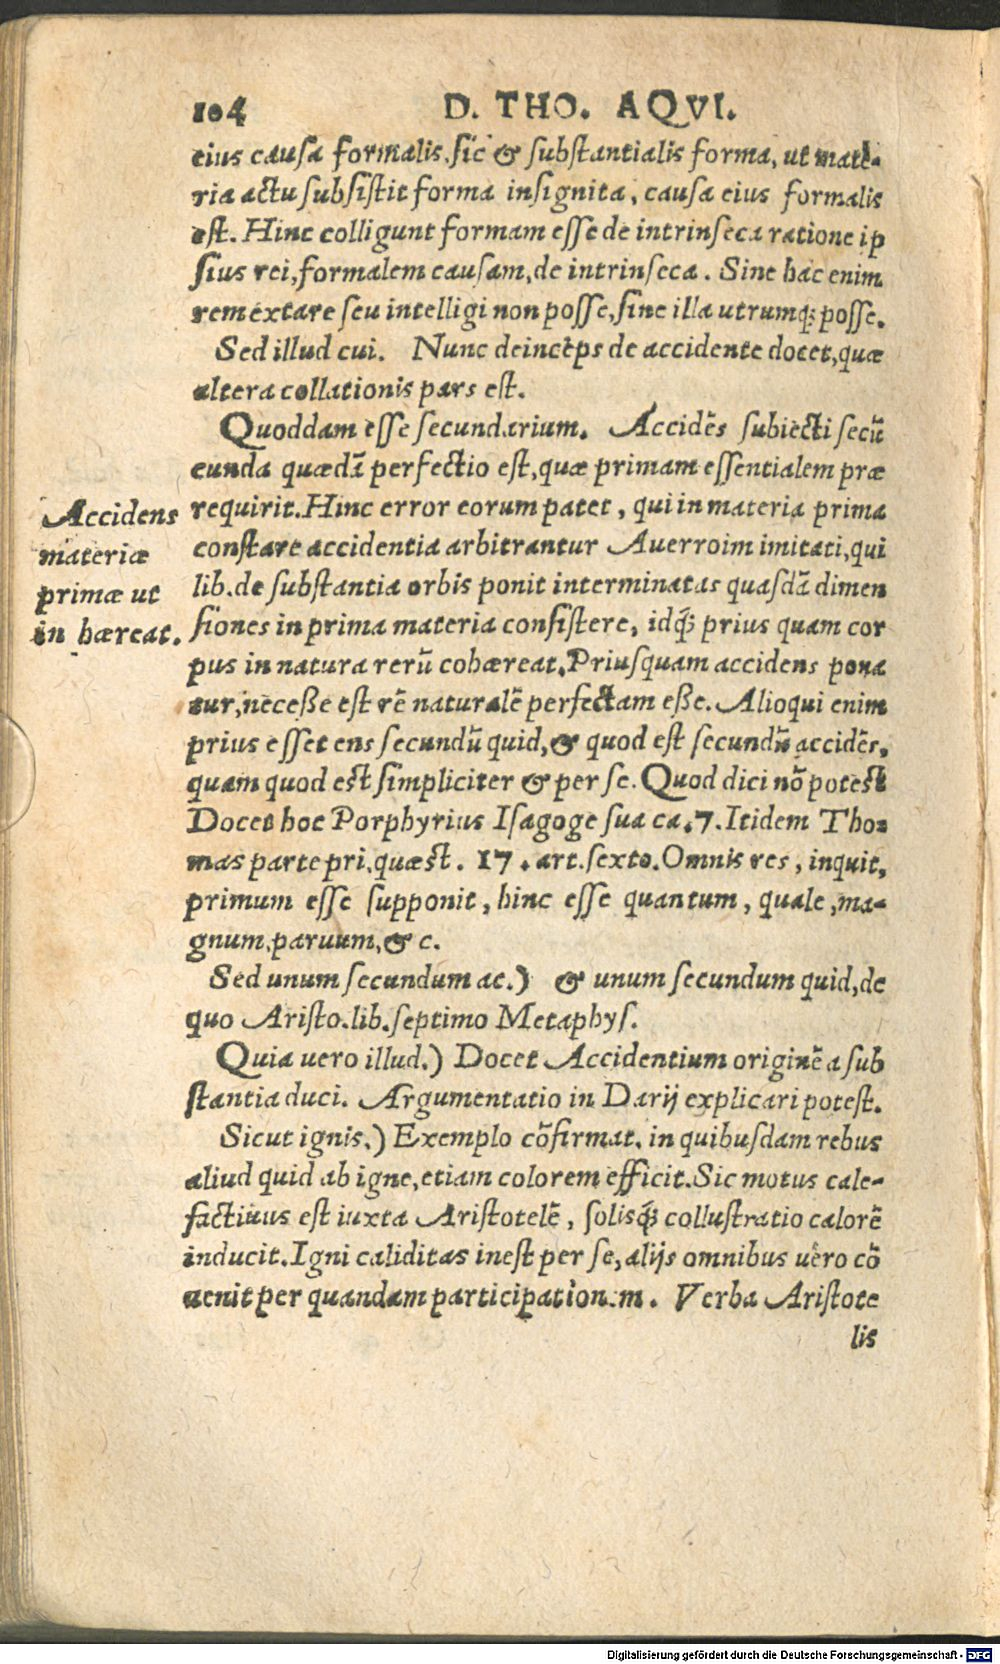 104 D. THO. AQVI.
eius causa formalis, sic & substantialis forma, ut mate-
ria actu subsistit forma insignita, causa eius formalis
est. Hinc colligunt formam esse de intrinseca ratione ip
sius rei, formalem causam, de intrinseca. Sine hac enim
rem extare seu intelligi non posse, sine illa utrumq; posse.
Sed illud cui. Nunc deinceps de accidente docet, quæ
altera collationis pars est.
Quoddam esse secundarium. Accidēs subiecti secū
cunda quædā perfectio est, quæ primam essentialem præ
requirit. Hinc error eorum patet, qui in materia prima
constare accidentia arbitrantur Auerroim imitati, qui
lib. de substantia orbis ponit interminatas quasdā dimen
siones in prima materia consistere, idq́; prius quam cor
pus in natura rerū cohæreat. Priusquam accidens pona
tur, neceße est rē naturalē perfectam eße. Alioqui enim
prius esset ens secundū quid, & quod est secundū accidēs,
quam quod est simpliciter & per se. Quod dici nō potest
Docet hoc Porphyrius Isagoge sua ca. 7. Itidem Tho-
mas parte pri. quæst. 17. art. sexto. Omnis res, inquit,
primum esse supponit, hinc esse quantum, quale, ma-
gnum, paruum, & c.
Sed unum secundum ac.) & unum secundum quid, de
quo Aristo. lib. septimo Metaphys.
Quia uero illud.) Docet Accidentium originē a sub
stantia duci. Argumentatio in Darij explicari potest.
Sicut ignis.) Exemplo cōfirmat. in quibusdam rebus
aliud quid ab igne, etiam colorem efficit. Sic motus cale-
factiuus est iuxta Aristotelē, solisq́; collustratio calorē
inducit. Igni caliditas inest per se, alijs omnibus uero cō
uenit per quandam participationem. Verba Aristote
lis
Accidens
materiæ
primæ ut
in hæreat.
Digitalisierung gefördert durch die Deutsche Forschungsgemeinschaft - DFG